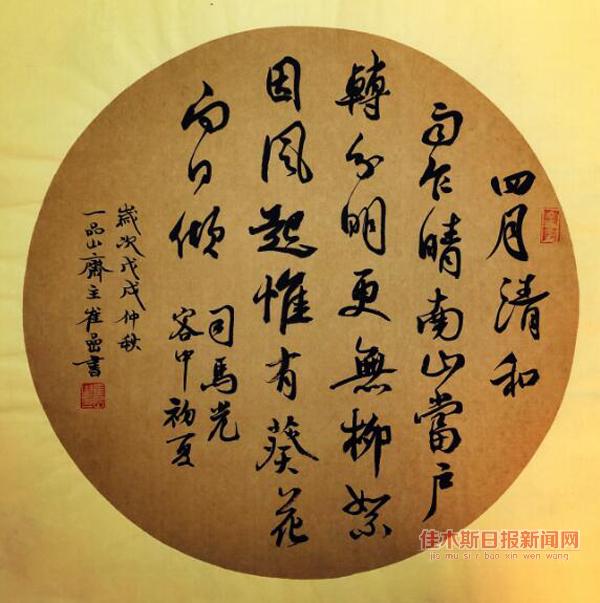 四月清和
雨乍晴南山當户
轉分明更無柳絮
因風起惟有葵花
向日傾
司馬光
客中初夏
歲次戊戌仲秋
一品山齋主崔品書
佳木斯日报新闻网
jia mu si ri bao xin wen wang